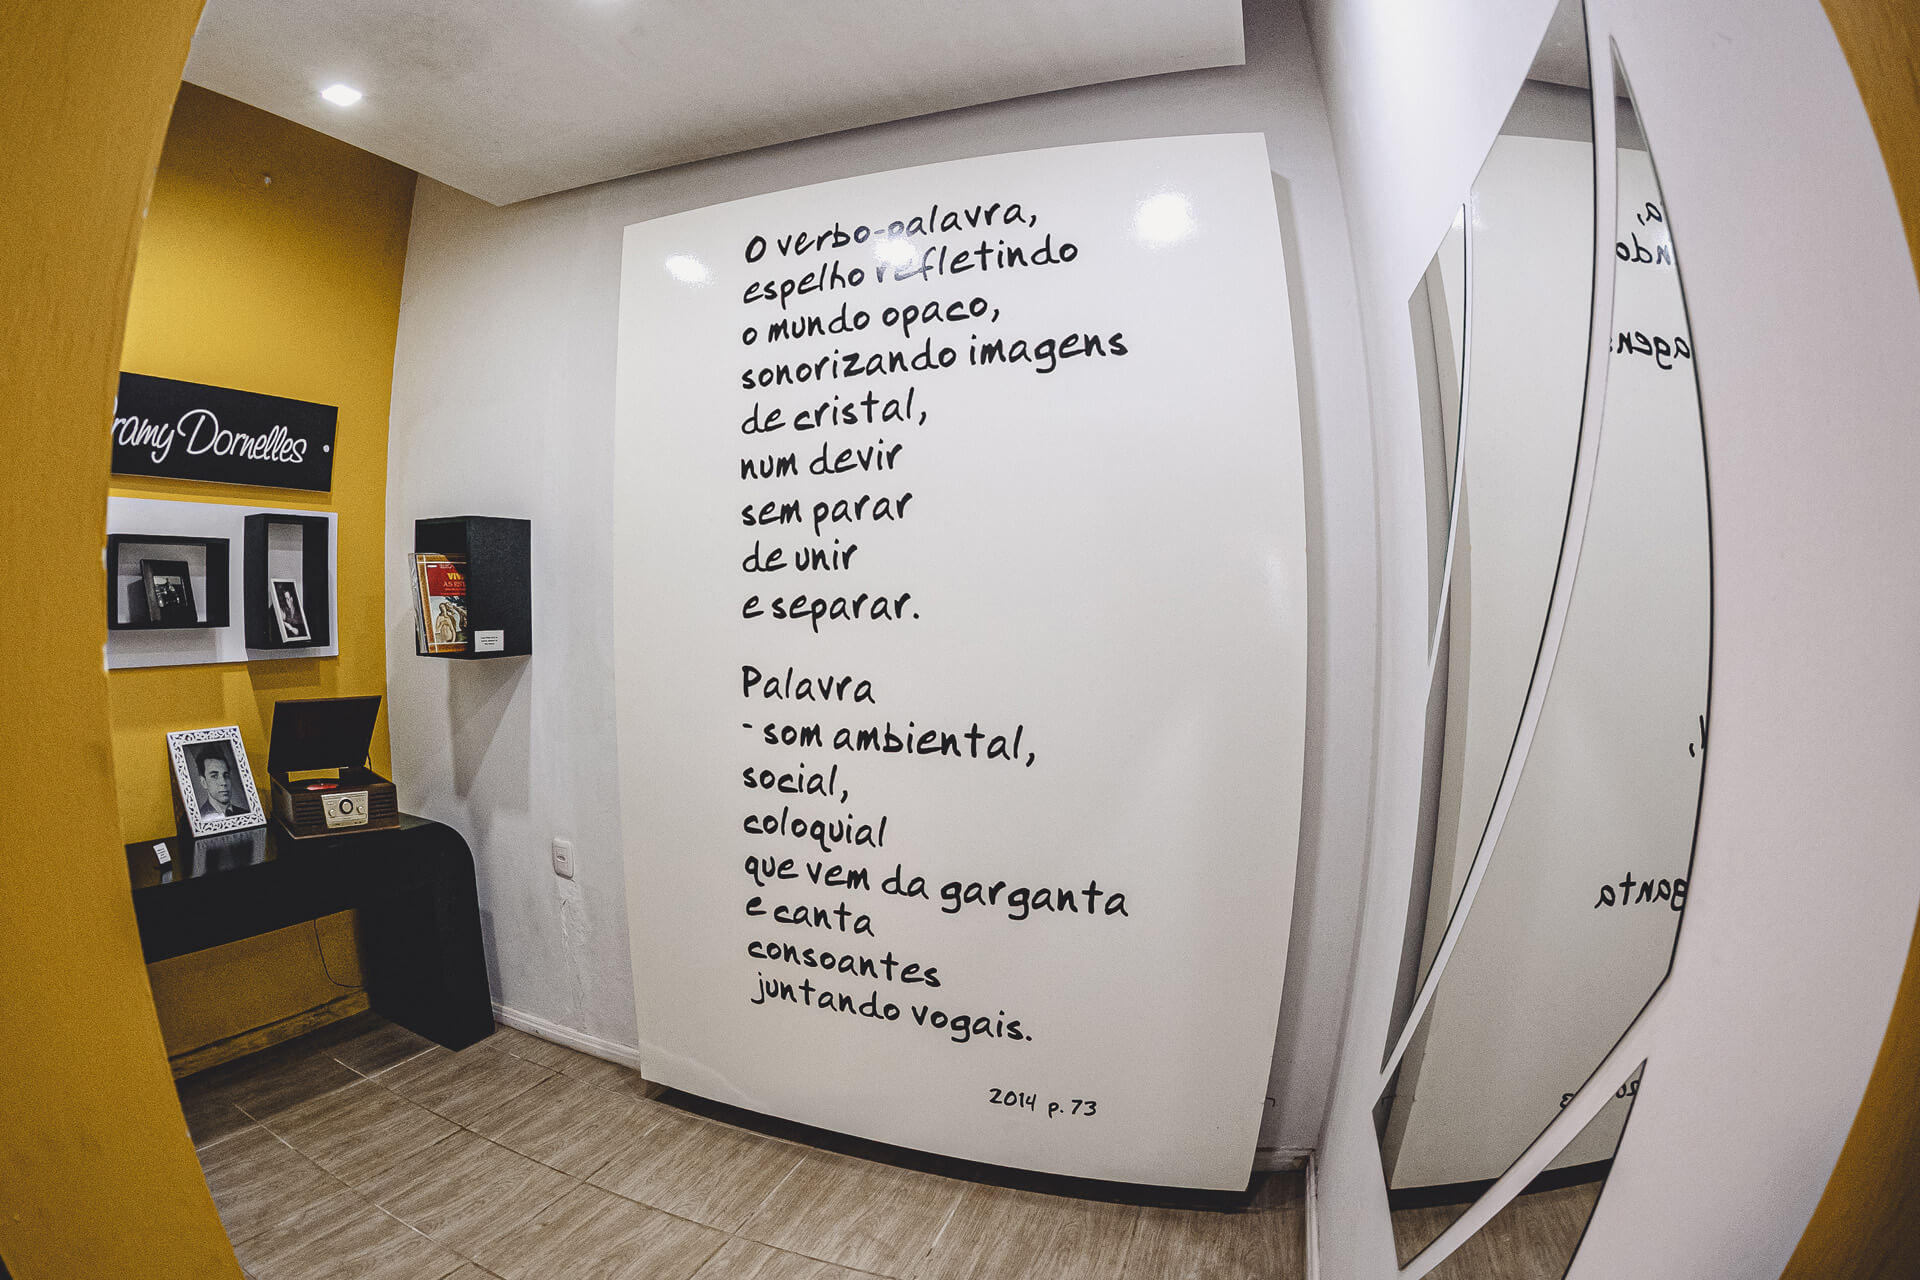 O verbo-palavra,
espelho refletindo
o mundo opaco,
sonorizando imagens
de cristal,
num devir
sem parar
de unir
e separar.
Palavra
- som ambiental,
social,
coloquial
que vem da garganta
e canta
consoantes
juntando vogais.
2014 p. 73
Dornelles